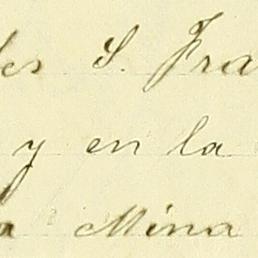 les S. Fra
y en la
a Mina